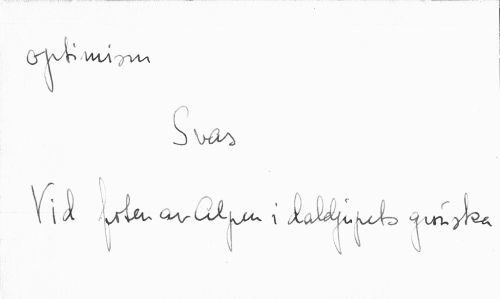 optimism
Svas
Vid foten av Alpen i daldjupets grönska